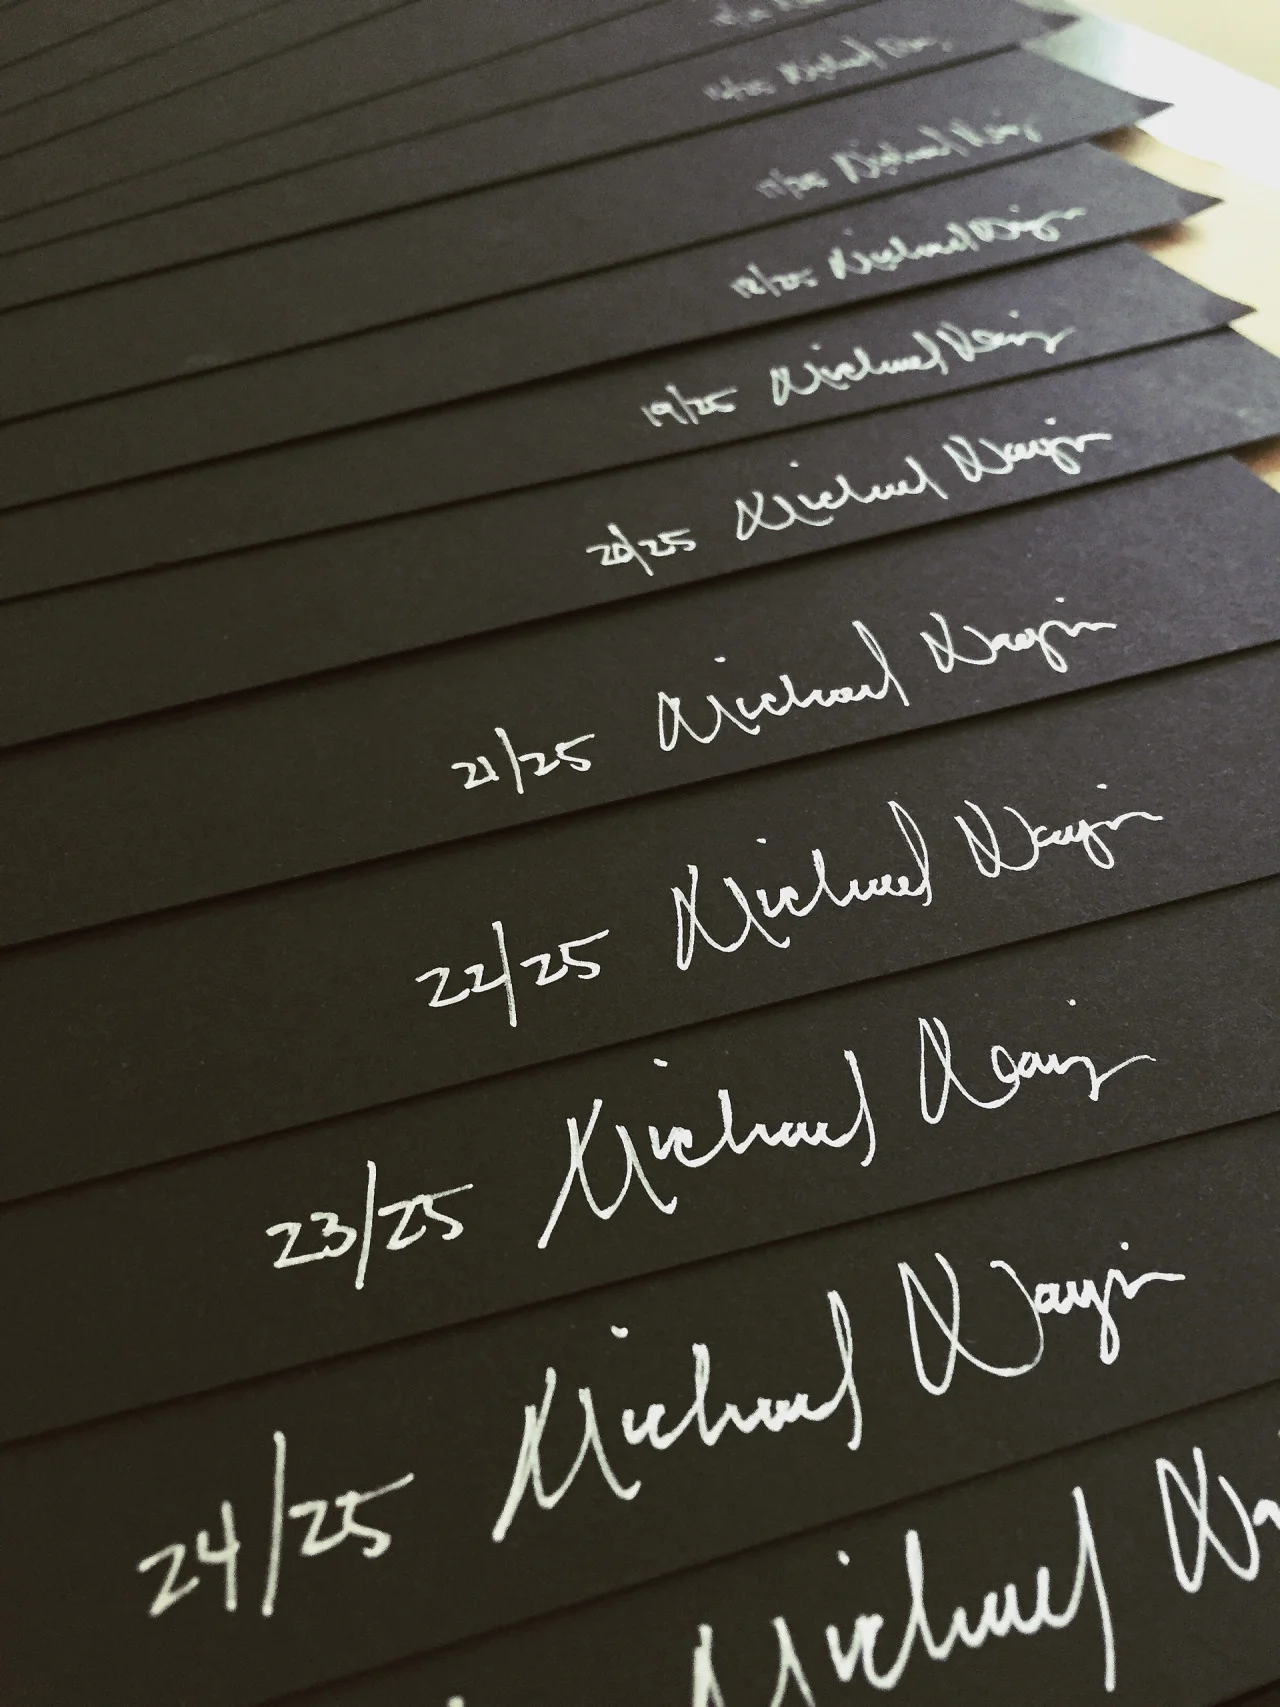 16/25 Michael
17/25 Michael Nagin
18/25 Michael Nagin
19/25 Michael Nagin
20/25 Michael Nagin
21/25 Michael Nagin
22/25 Michael Nagin
23/25 Michael Nagin
24/25 Michael Nagin
Michael Na